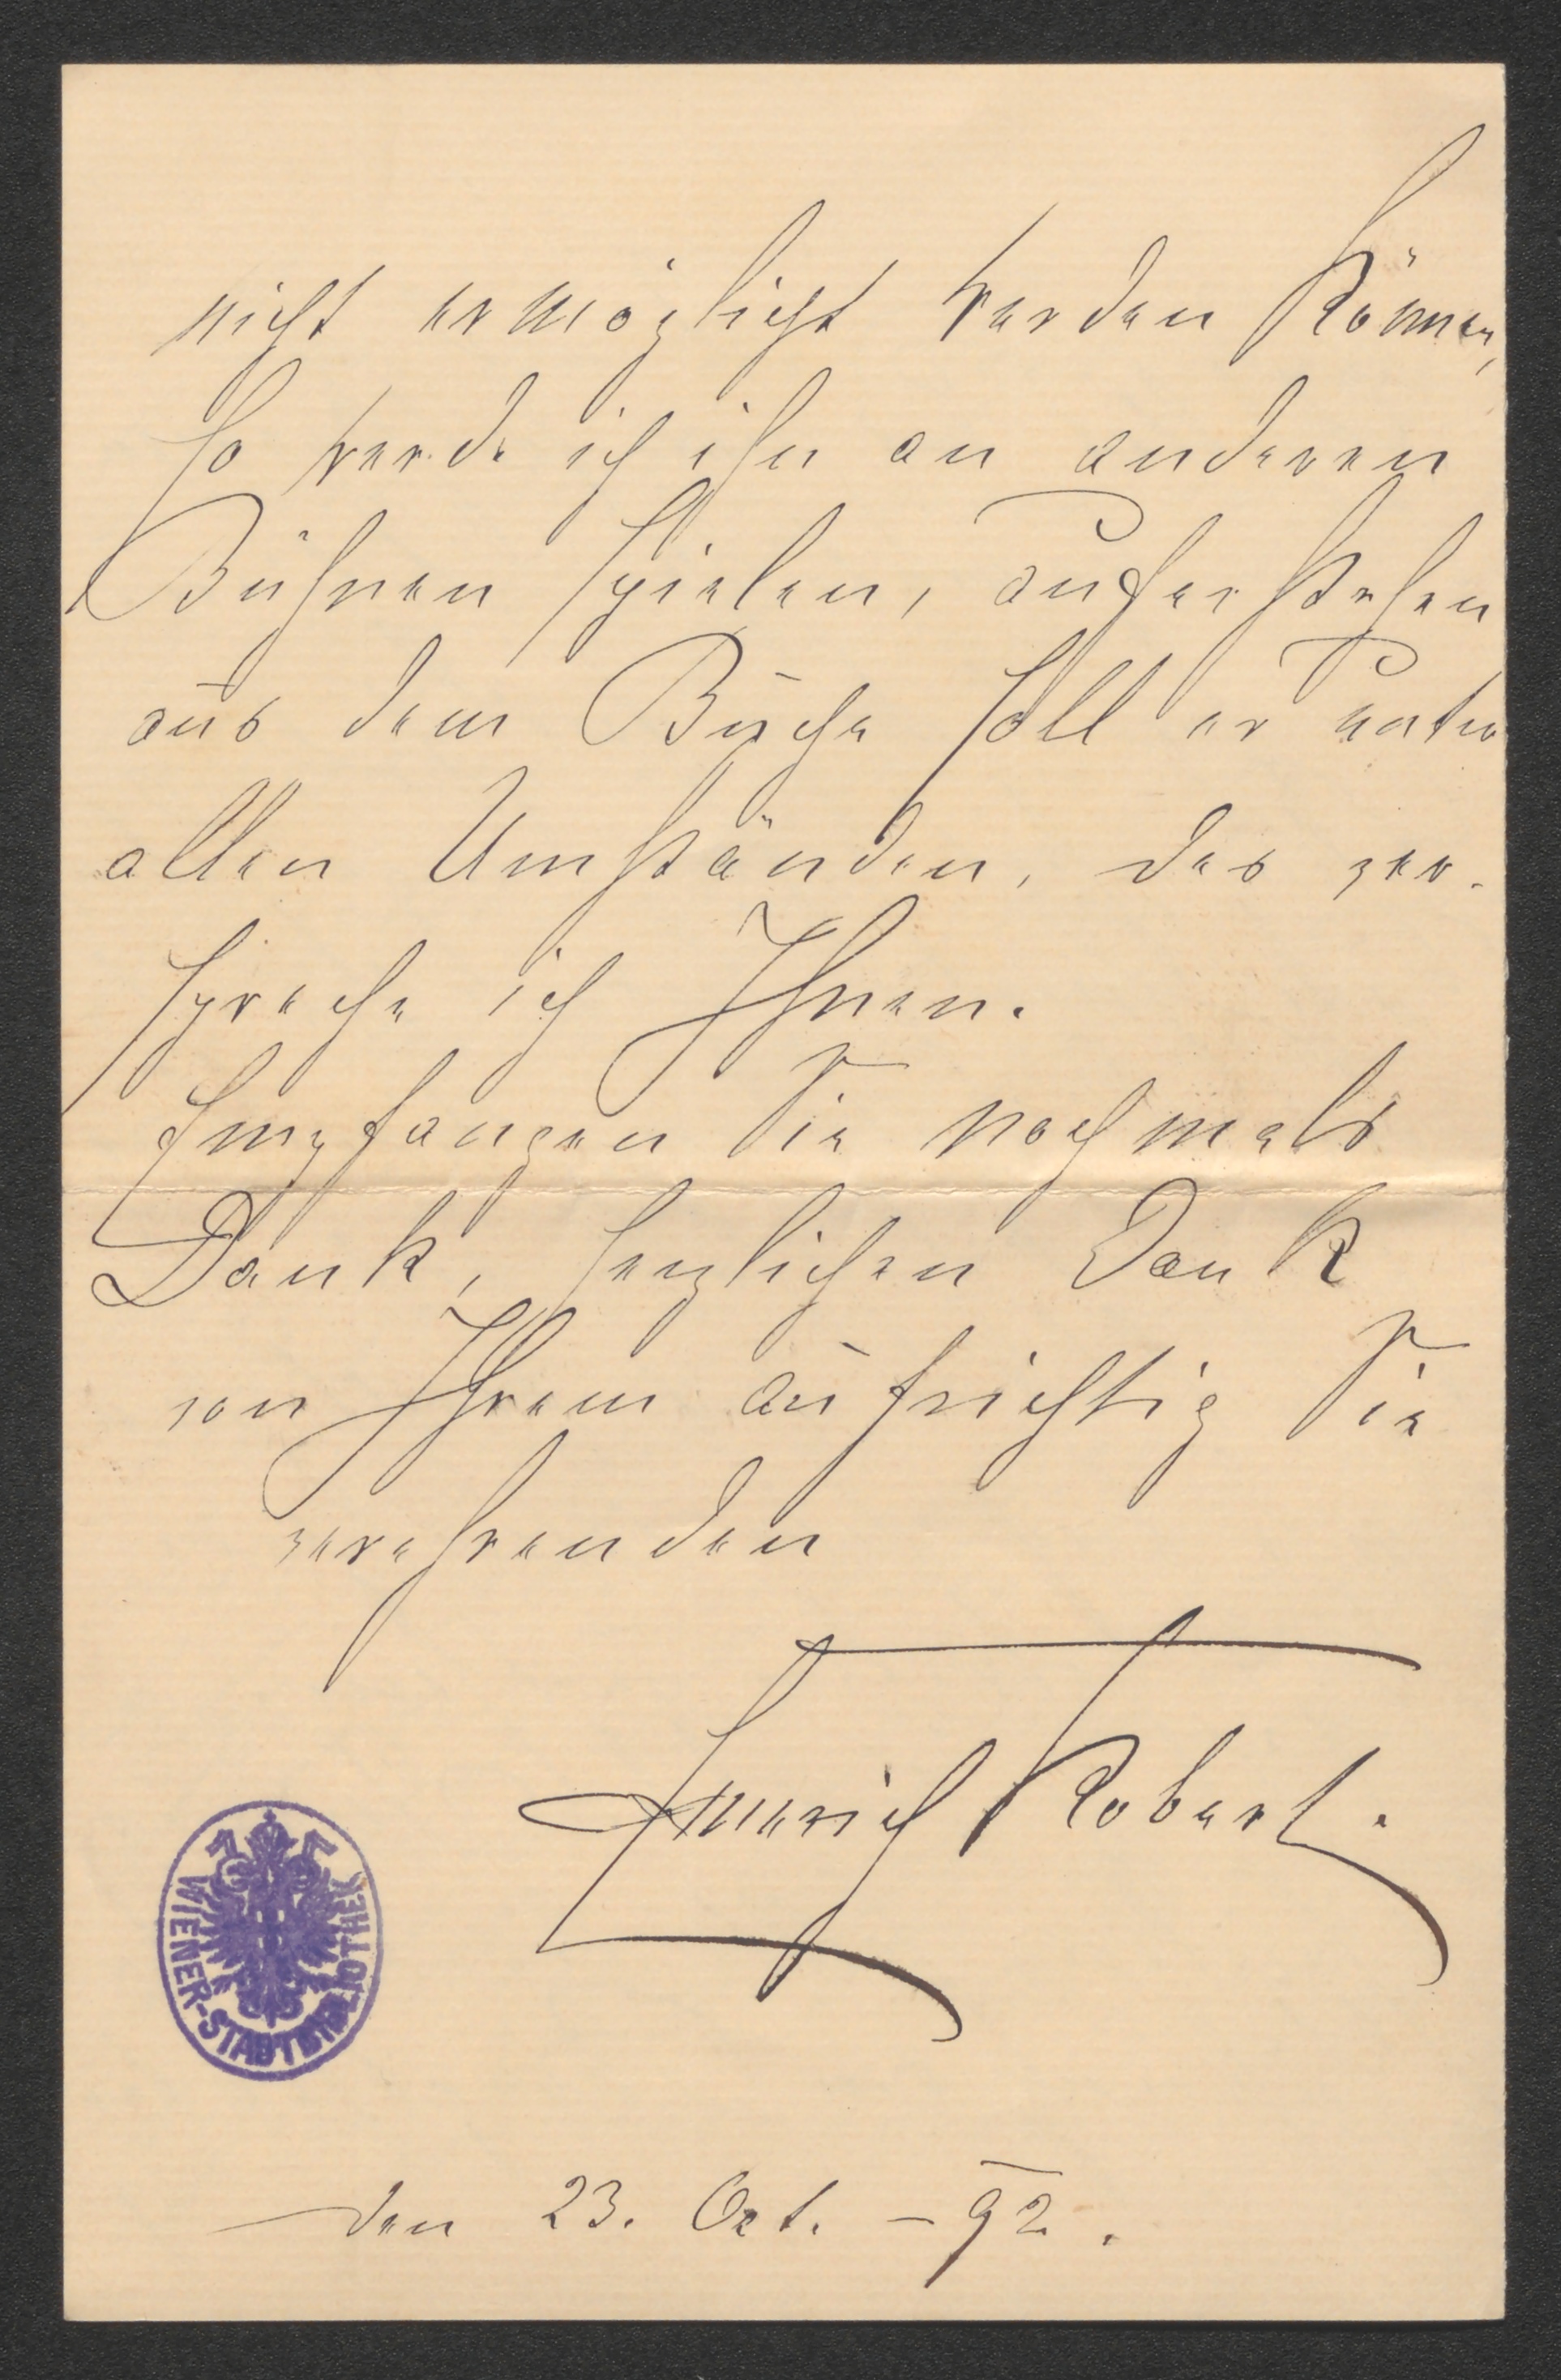 nicht ermöglicht werden können,
so werde ich ihn an anderen
Bühnen spielen, auferstehen
aus dem Buche soll er unter
allen Umständen, das ver-
spreche ich Ihnen.
Empfangen Sie nochmals
Dank, herzlichen Dank
von Ihrem aufrichtig Sie
verehrenden
Emerich Robert.
WIENER-STADTBIBLIOTHEK
den 23. Oct. -92.